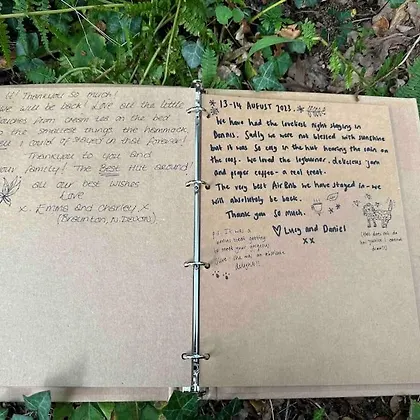 it! Thankyou so much!
we will be back! Love all the little
touches from charm ties on the bed
to the smallest things the hammock,
I could of stayed in that forever!
Thankyou to you and
your family! The Best Hut around!
all our best wishes
Love
x. Emma and Charley. x
(Braunton, N. Devon).
13-14 AUGUST 2023.
We have had the loveliest night staying in
Dennis. Sadly we were not blessed with sunshine
but it was so cosy in the hut hearing the rain on
the roof. We loved the logburner, delicious jam
and proper coffee - a real treat.
The very best AirBnb we have stayed in - we
will absolutely be back.
Thank you so much.
Lucy and Daniel
xx
P.S. It was a
treat getting
to meet your gorgeous
she was an absolute
delight!!